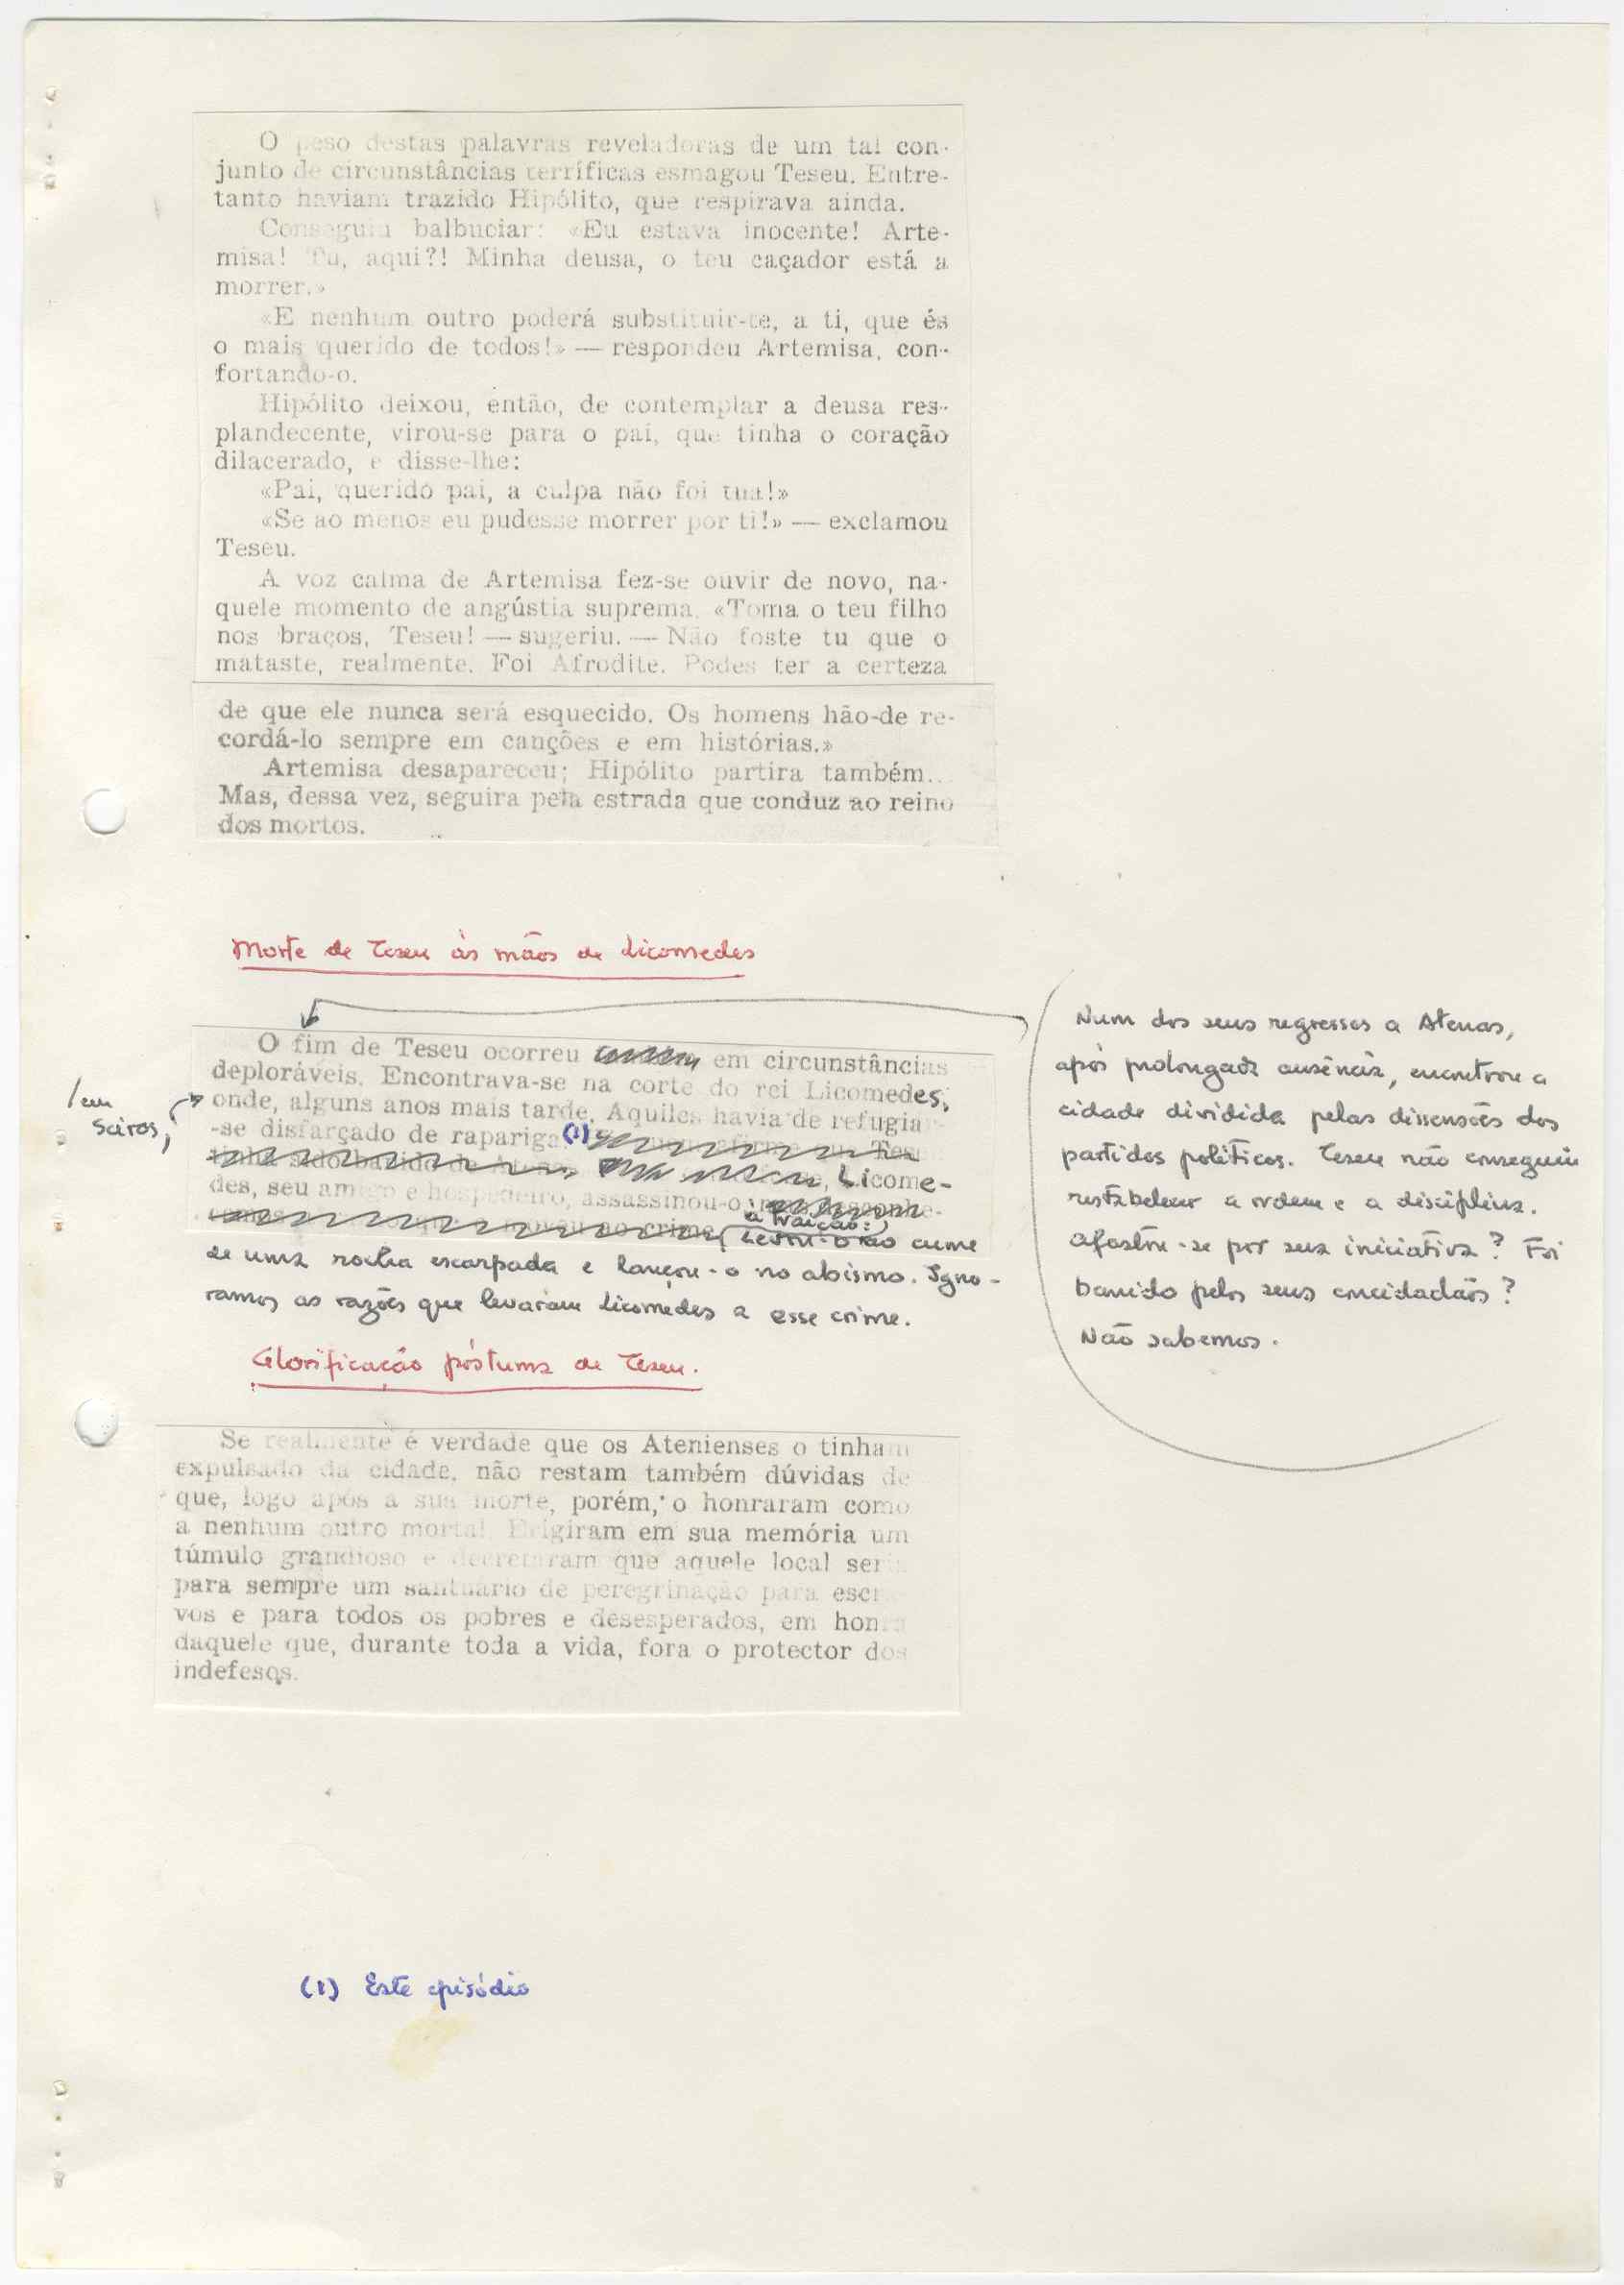 O peso destas palavras reveladoras de um tal con-
junto de circunstâncias terríficas esmagou Teseu. Entre-
tanto haviam trazido Hipólito, que respirava ainda.
Conseguiu balbuciar: «Eu estava inocente! Arte-
misa! Tu, aqui?! Minha deusa, o teu caçador está a
morrer.»
«E nenhum outro poderá substituir-te, a ti, que és
o mais querido de todos!» — respondeu Artemisa, con-
fortando-o.
Hipólito deixou, então, de contemplar a deusa res-
plandecente, virou-se para o pai, que tinha o coração
dilacerado, e disse-lhe:
«Pai, querido pai, a culpa não foi tua!»
«Se ao menos eu pudesse morrer por ti!» — exclamou
Teseu.
A voz calma de Artemisa fez-se ouvir de novo, na-
quele momento de angústia suprema. «Toma o teu filho
nos braços, Teseu! — sugeriu. — Não foste tu que o
mataste, realmente. Foi Afrodite. Podes ter a certeza
de que ele nunca será esquecido. Os homens hão-de re-
cordá-lo sempre em canções e em histórias.»
Artemisa desapareceu; Hipólito partira também...
Mas, dessa vez, seguira pela estrada que conduz ao reino
dos mortos.
Morte de Teseu às mãos de Licomedes
Num dos seus regressos a Atenas,
após prolongada ausência, encontrou a
cidade dividida pelas dissensões dos
partidos políticos. Teseu não conseguiu
restabelecer a ordem e a disciplina.
Afastou-se por sua iniciativa? Foi
banido pelos seus concidadãos?
Não sabemos.
O fim de Teseu ocorreu em circunstâncias
deploráveis. Encontrava-se na corte do rei Licomedes,
/em
Sciros,
onde, alguns anos mais tarde, Aquiles havia de refugiar-
-se disfarçado de rapariga (1)
Licome-
des, seu amigo e hospedeiro, assassinou-o
à traição:
Levou-o ao cume
de uma rocha escarpada e lançou-o no abismo. Igno-
ramos as razões que levaram Licomedes a esse crime.
Glorificação póstuma de Teseu.
Se realmente é verdade que os Atenienses o tinham
expulsado da cidade, não restam também dúvidas de
que, logo após a sua morte, porém, o honraram como
a nenhum outro mortal. Erigiram em sua memória um
túmulo grandioso e decretaram que aquele local seria
para sempre um santuário de peregrinação para escra-
vos e para todos os pobres e desesperados, em honra
daquele que, durante toda a vida, fora o protector dos
indefesos.
(1) Este episódio